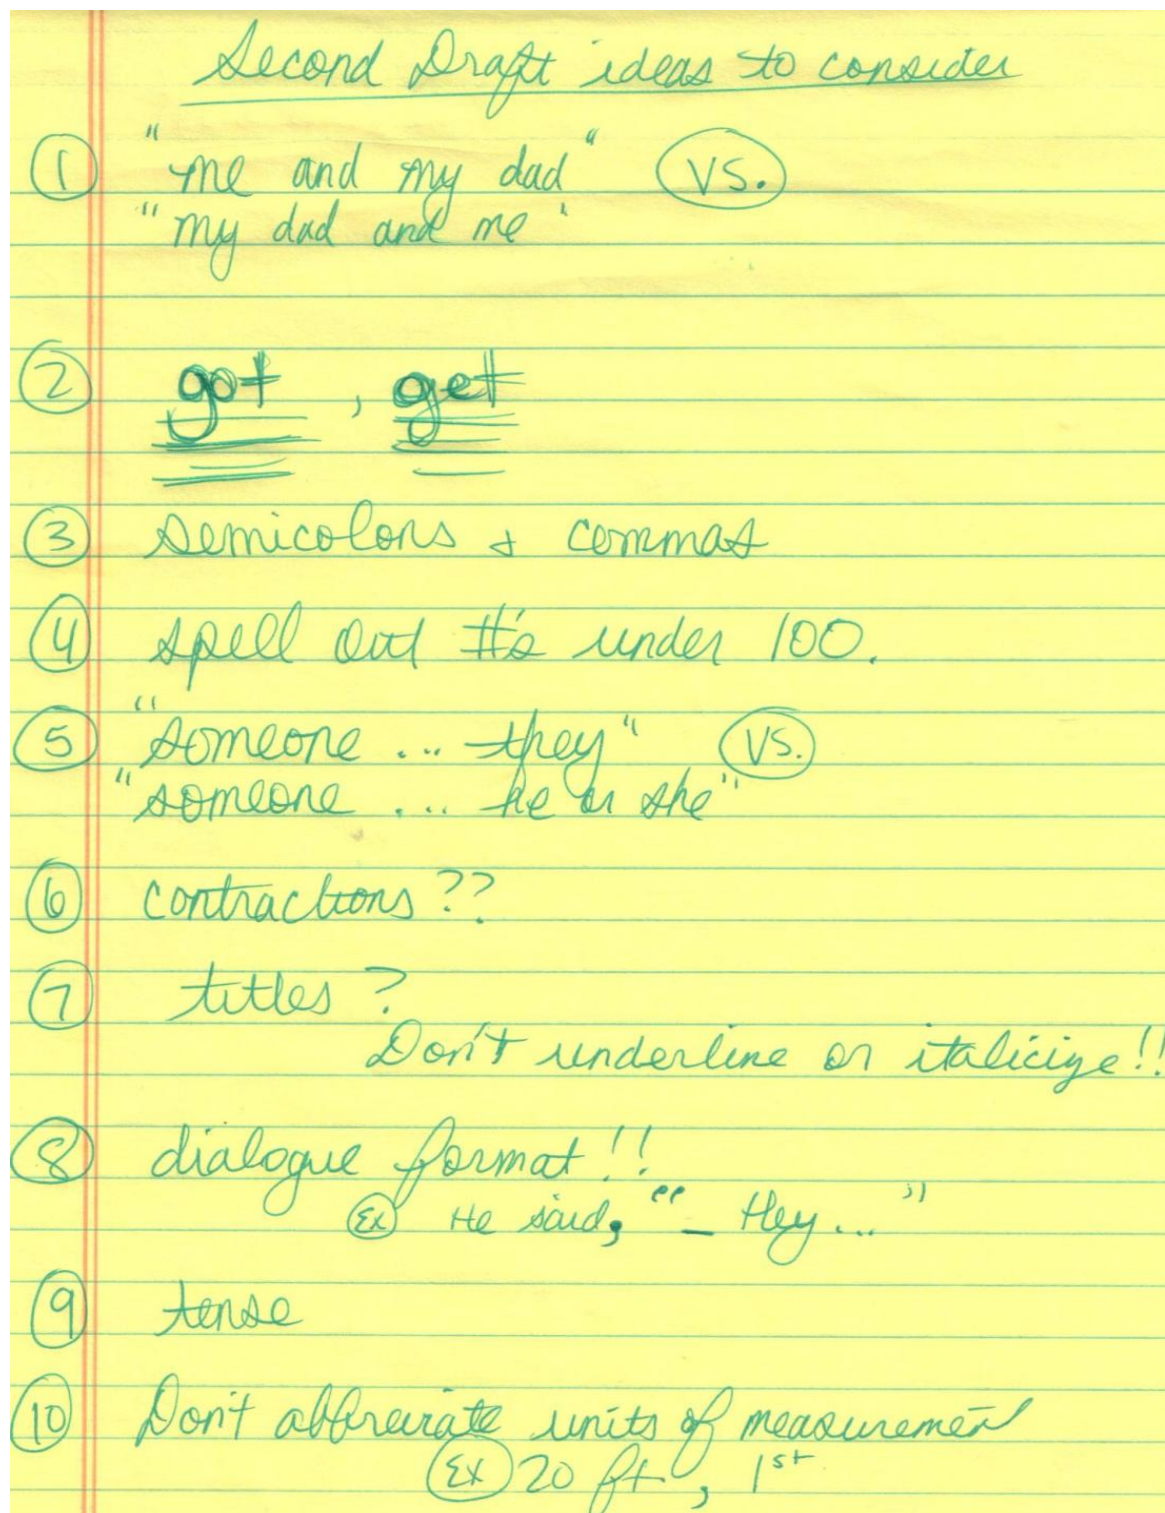 Second Draft ideas to consider
① "me and my dad" VS.
"my dad and me"
② got, get
③ semicolons + commas
④ spell out #'s under 100.
⑤ "someone ... they" VS.
"someone .... he or she"
⑥ contractions??
⑦ titles?
Don't underline or italicize!!
⑧ dialogue format!!
Ex He said, "_ Hey..."
⑨ tense
⑩ Don't abbreviate units of measurement
Ex 20 ft, 1st